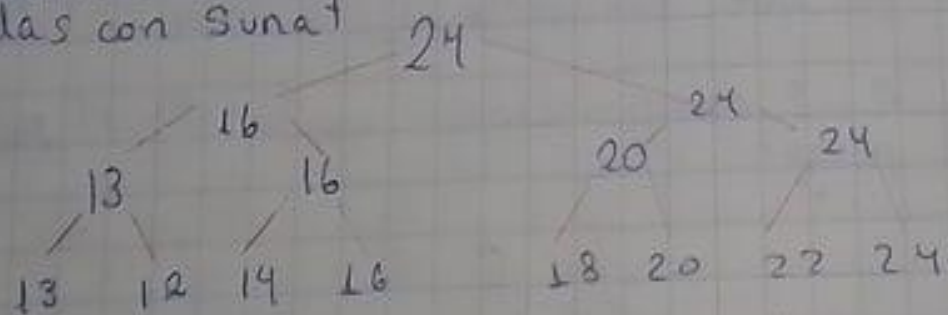 das con Sunat
24
16 24
13 16 20 24
13 12 14 16 18 20 22 24